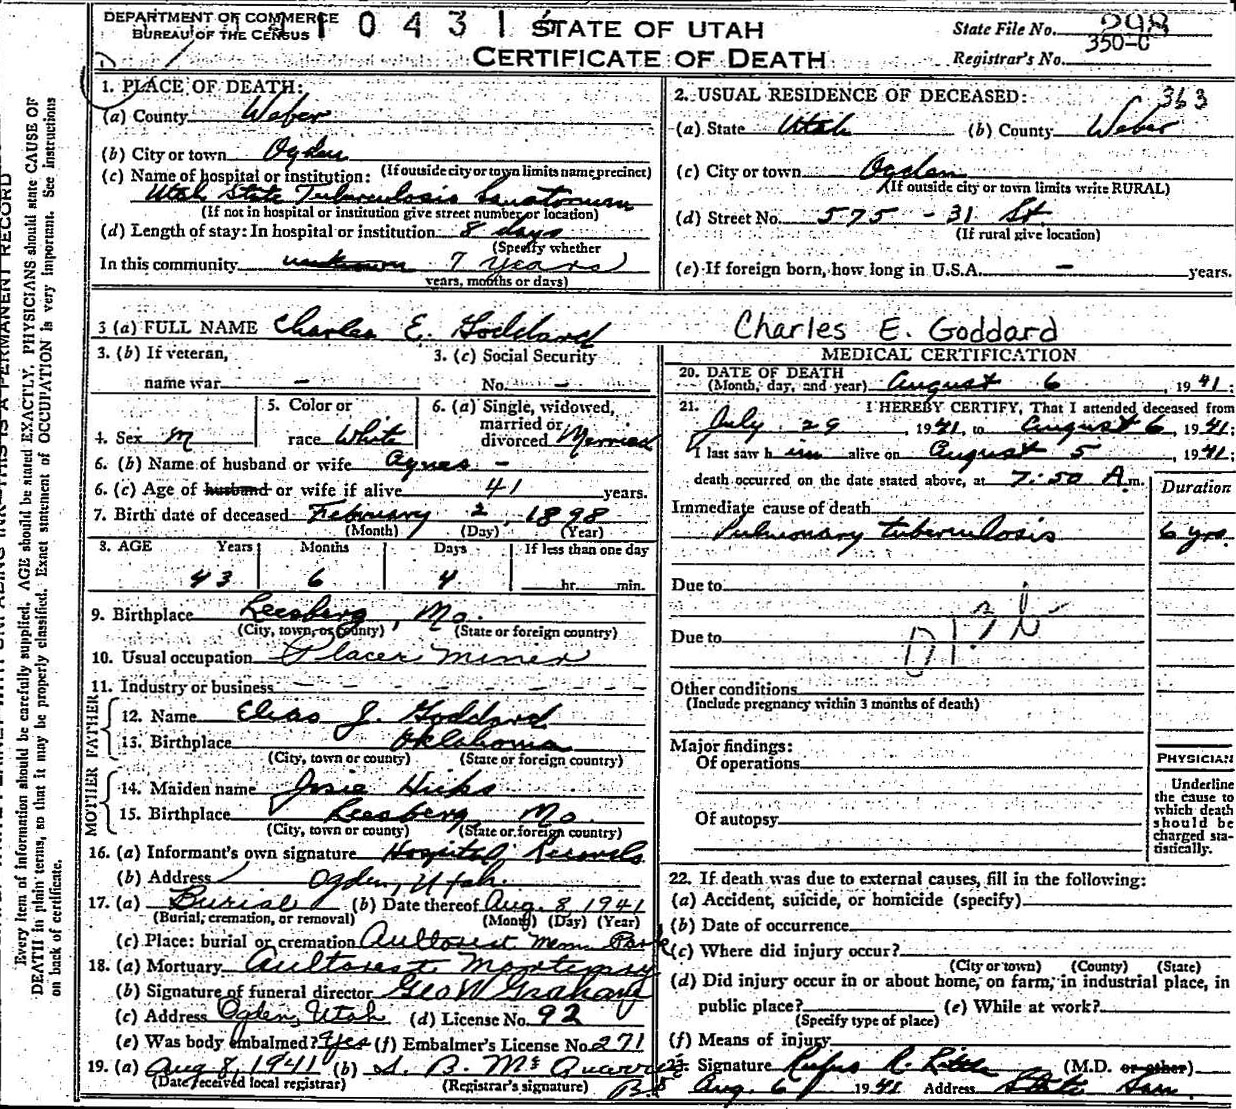 DEPARTMENT OF COMMERCE
BUREAU OF THE CENSUS
0431
STATE OF UTAH
CERTIFICATE OF DEATH
State File No. 298
350-C
Registrar's No.
363
1. PLACE OF DEATH:
(a) County Weber
(b) City or town Ogden
(If outside city or town limits name precinct)
(c) Name of hospital or institution:
Utah State Tuberculosis Sanatorium
(If not in hospital or institution give street number or location)
(d) Length of stay: In hospital or institution 8 days
(Specify whether
In this community unknown 7 years
years, months or days)
2. USUAL RESIDENCE OF DECEASED:
(a) State Utah (b) County Weber
(c) City or town Ogden
(If outside city or town limits write RURAL)
(d) Street No. 575 - 31 St
(If rural give location)
(e) If foreign born, how long in U.S.A. — years.
3 (a) FULL NAME Charles E. Goddard
Charles E. Goddard
3. (b) If veteran,
name war —
3. (c) Social Security
No. —
4. Sex M
5. Color or
race White
6. (a) Single, widowed,
married or
divorced Married
6. (b) Name of husband or wife Agnes -
6. (c) Age of husband or wife if alive 41 years.
7. Birth date of deceased February 2, 1898
(Month) (Day) (Year)
8. AGE Years Months Days If less than one day
43 6 4 hr. min.
9. Birthplace Leesberg, Mo.
(City, town, or county) (State or foreign country)
10. Usual occupation Placer Miner
11. Industry or business
FATHER
12. Name Elias J. Goddard
13. Birthplace Oklahoma
(City, town or county) (State or foreign country)
MOTHER
14. Maiden name Josie Hicks
15. Birthplace Leesberg Mo.
(City, town or county) (State or foreign country)
16. (a) Informant's own signature Hospital Records
(b) Address Ogden, Utah.
17. (a) Burial (b) Date thereof Aug. 8, 1941
(Burial, cremation, or removal) (Month) (Day) (Year)
(c) Place: burial or cremation Aultorest Mem. Park
18. (a) Mortuary Aultorest Mortuary
(b) Signature of funeral director Geo W Graham
(c) Address Ogden, Utah (d) License No. 92
(e) Was body embalmed? Yes (f) Embalmer's License No. 271
19. (a) Aug 8, 1941 (b) B. Mc Quarrie
(Date received local registrar) (Registrar's signature)
MEDICAL CERTIFICATION
20. DATE OF DEATH
(Month, day, and year) August 6, 1941;
21. I HEREBY CERTIFY, That I attended deceased from
July 29, 1941, to August 6, 1941;
I last saw h im alive on August 5, 1941;
death occurred on the date stated above, at 7:50 A.m.
Duration
Immediate cause of death
Pulmonary tuberculosis 6 yrs.
Due to
Due to
Other conditions
(Include pregnancy within 3 months of death)
Major findings:
Of operations
Of autopsy
PHYSICIAN
Underline
the cause to
which death
should be
charged sta-
tistically.
22. If death was due to external causes, fill in the following:
(a) Accident, suicide, or homicide (specify)
(b) Date of occurrence
(c) Where did injury occur?
(City or town) (County) (State)
(d) Did injury occur in or about home, on farm, in industrial place, in
public place? (e) While at work?
(Specify type of place)
(f) Means of injury
23. Signature Rufus R. (M.D. or other)
Aug. 6 1941 Address State San
Every item of information should be carefully supplied. AGE should be stated EXACTLY. PHYSICIANS should state CAUSE OF
DEATH in plain terms, so that it may be properly classified. Exact statement of OCCUPATION is very important. See instructions
on back of certificate.